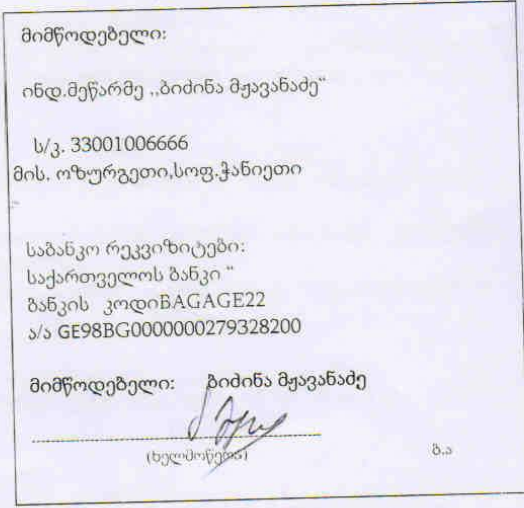 მიმწოდებელი:
ინდ.მეწარმე ,,ბიძინა მჟავანაძე“
ს/კ. 33001006666
მის. ოზურგეთი,სოფ.ჭანიეთი
საბანკო რეკვიზიტები:
საქართველოს ბანკი “
ბანკის კოდიBAGAGE22
ა/ა GE98BG0000000279328200
მიმწოდებელი: ბიძინა მჟავანაძე
(ხელმოწერა) ბ.ა